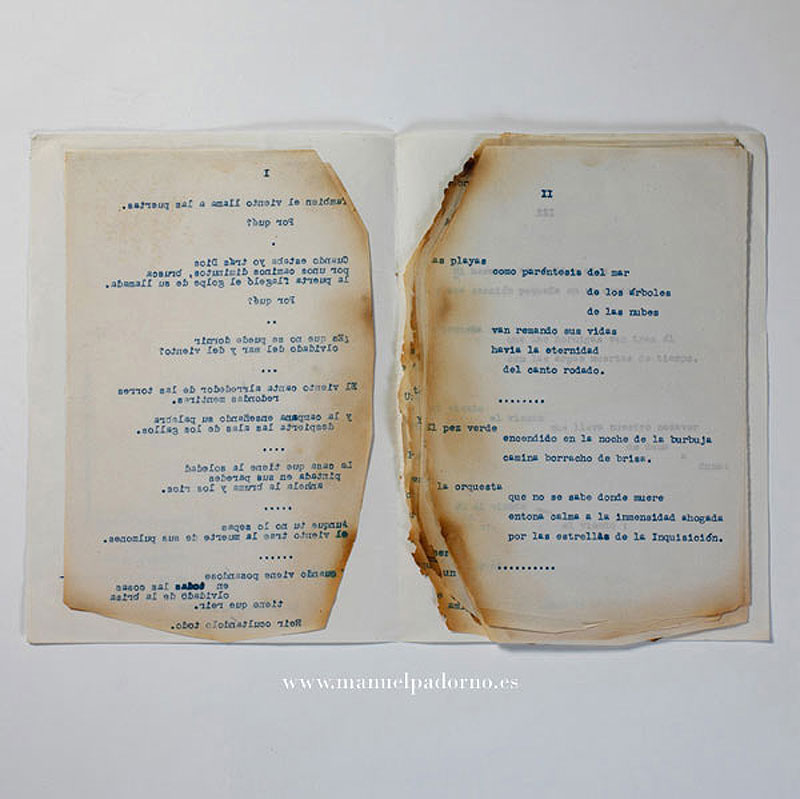 I
Tambien el viento llama a las puertas.
Por qué?
.
Cuando estaba yo trás Dios
por unos caminos diminutos, brusca
la puerta flageló el golpe de su llamada.
Por qué?
..
¿Es que no se puede dormir
olvidado del mar y del viento?
...
El viento canta alrrededor de las torres
redondas mentiras.
y la campana enseñando su palabra
despierta las alas de los gallos.
....
La casa que tiene la soledad
pintada en sus paredes
anhela la bruma y los rios.
.....
Aunque tu no lo sepas
el viento trae la muerte de sus pulmones.
......
cuando viene posandose
en todas las cosas
olvidado de la brisa
tiene que reir.
Reir ocultandolo todo.
II
III
as playas
como paréntesis del mar
de los árboles
de las nubes
van remando sus vidas
havia la eternidad
del canto rodado.
........
El pez verde
encendido en la noche de la burbuja
camina borracho de brisa.
la orquesta
que no se sabe donde muere
entona calma a la inmensidad ahogada
por las estrellas de la Inquisición.
..........
www.manuelpadorno.es